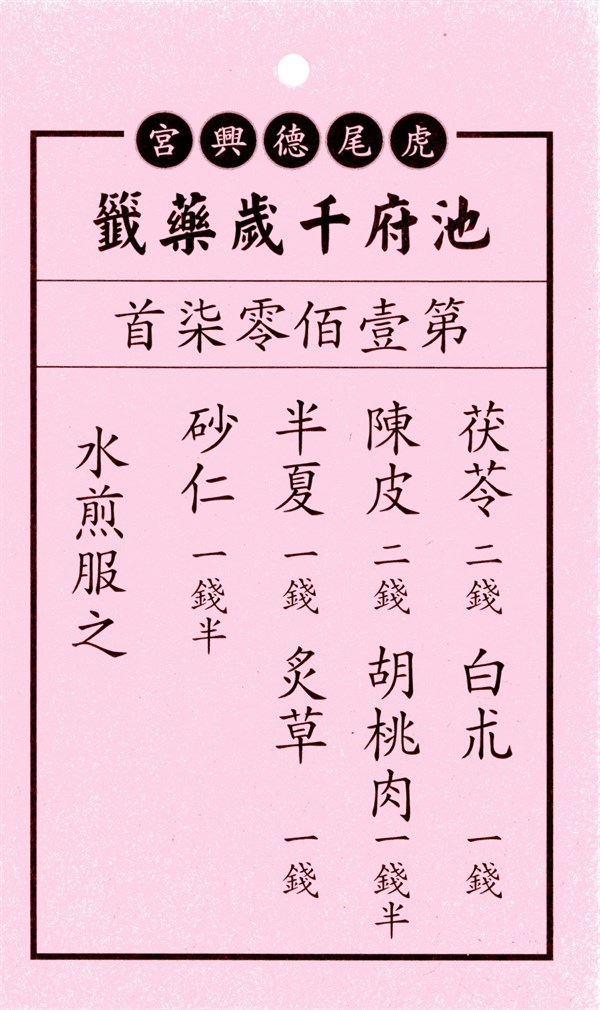 虎尾德興宮
池府千歲藥籤
第壹佰零柒首
茯苓二錢 白朮一錢
陳皮二錢 胡桃肉一錢半
半夏一錢 炙草一錢
砂仁一錢半
水煎服之